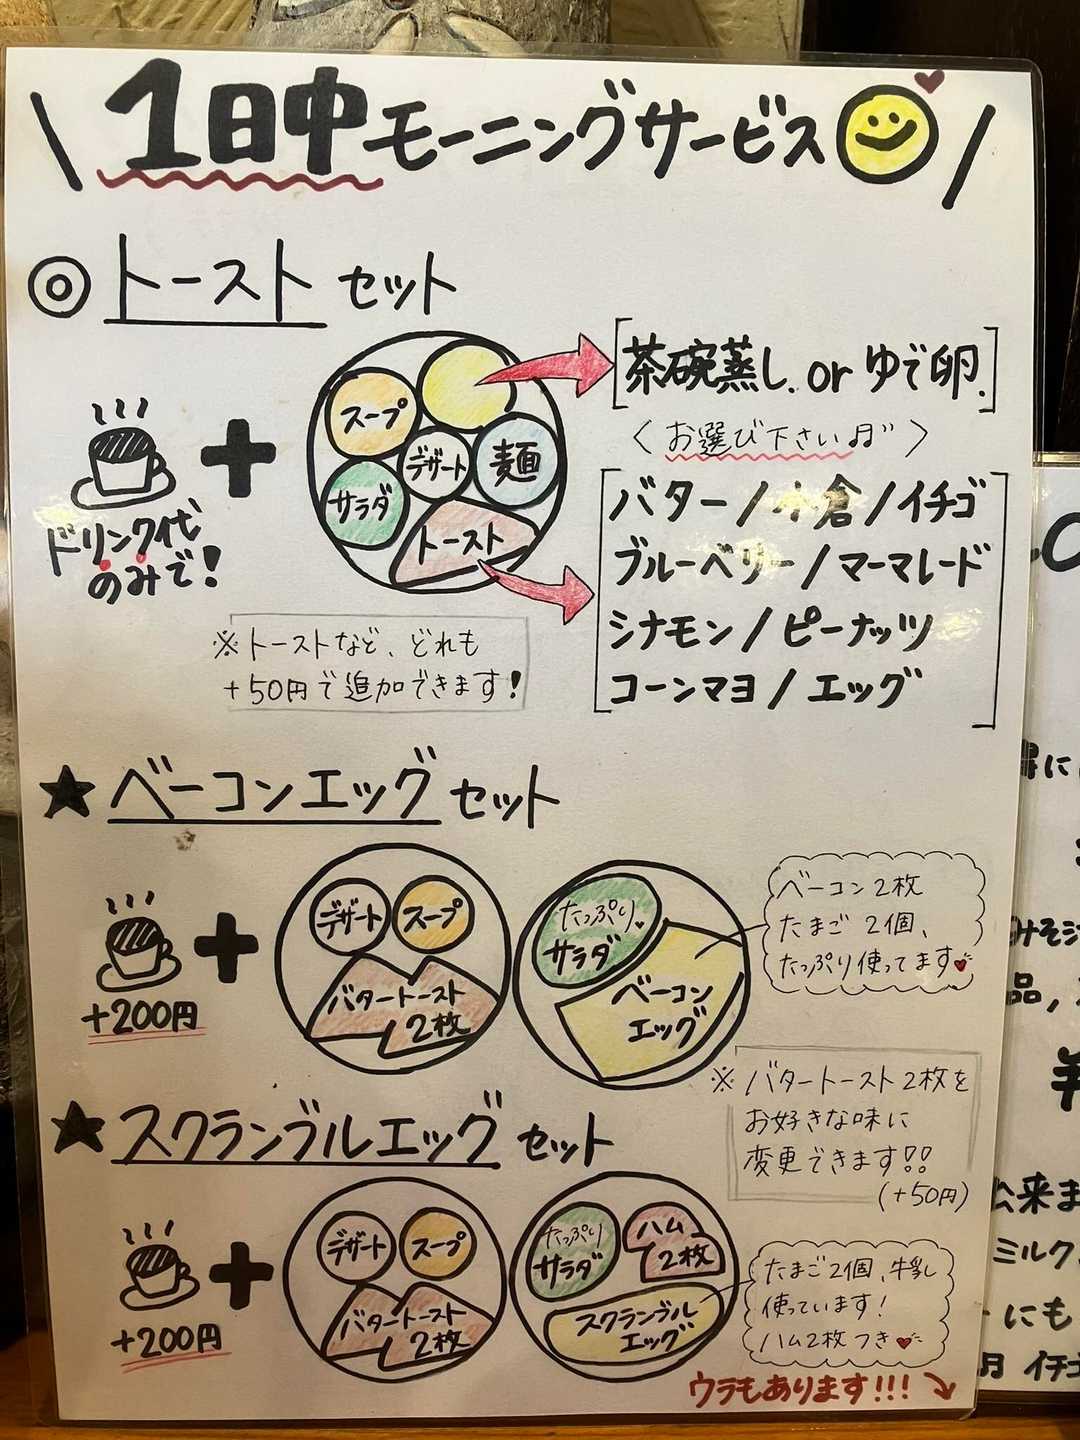 1日中モーニングサービス
◎トーストセット
茶碗蒸し. or ゆで卵.
〈お選び下さい♬〉
スープ
デザート
麺
サラダ
トースト
+
ドリンク代
のみで!
バター/小倉/イチゴ
ブルーベリー/マーマレード
シナモン/ピーナッツ
コーンマヨ/エッグ
※トーストなど、どれも
+50円で追加できます!
★ベーコンエッグセット
+
+200円
デザート
スープ
バタートースト
2枚
たっぷり
サラダ
ベーコン
エッグ
ベーコン2枚
たまご2個、
たっぷり使ってます
※バタートースト2枚を
お好きな味に
変更できます!!
(+50円)
★スクランブルエッグセット
+
+200円
デザート
スープ
バタートースト
2枚
たっぷり
サラダ
ハム
2枚
スクランブル
エッグ
たまご2個、牛乳
使っています!
ハム2枚つき
ウラもあります!!!
品,
ミルク
にも
月 イチゴ